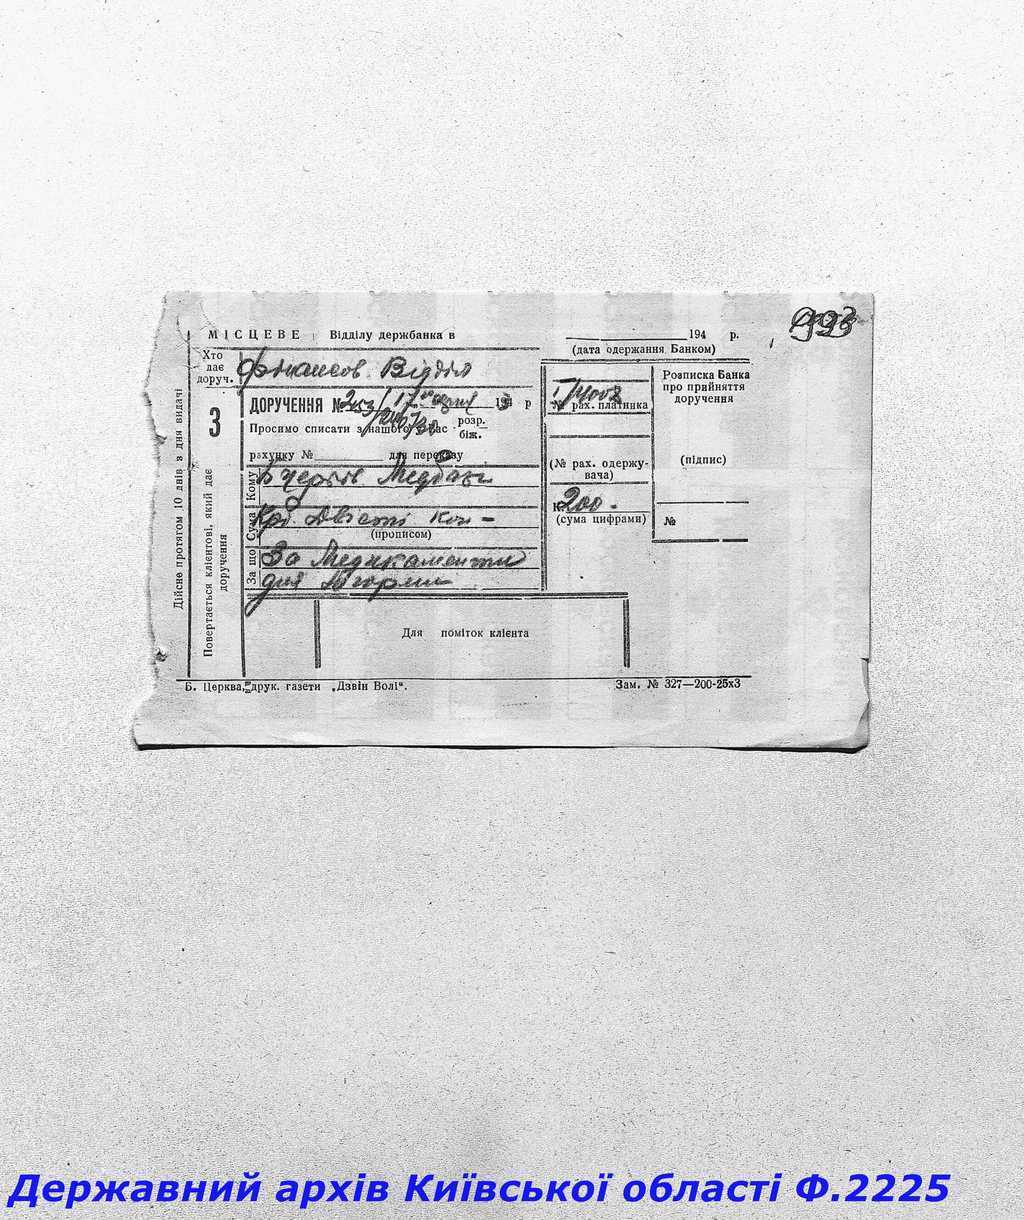 993
МІСЦЕВЕ Відділу держбанка в 194 р.
(дата одержання Банком)
Хто дає доруч.
Фінансов. Відділ
3
ДОРУЧЕННЯ № 2453/ 17 194 3 р
Просимо списати з нашого у вас розр. біж.
рахунку № для переказу
Кому
Б церків Медбазі
Сума
Крб Двісті коп –
(прописом)
За що
За Медикаменти
для
Для поміток клієнта
№ рах. платника
(№ рах. одержувача)
К. 200 -
(сума цифрами)
Розписка Банка
про прийняття
доручення
(підпис)
№
Дійсне протягом 10 днів з дня видачі
Повертається клієнтові, який дає
доручення
Б. Церква, друк. газети „Дзвін Волі“.
Зам. № 327—200-25х3
Державний архів Київської області Ф.2225